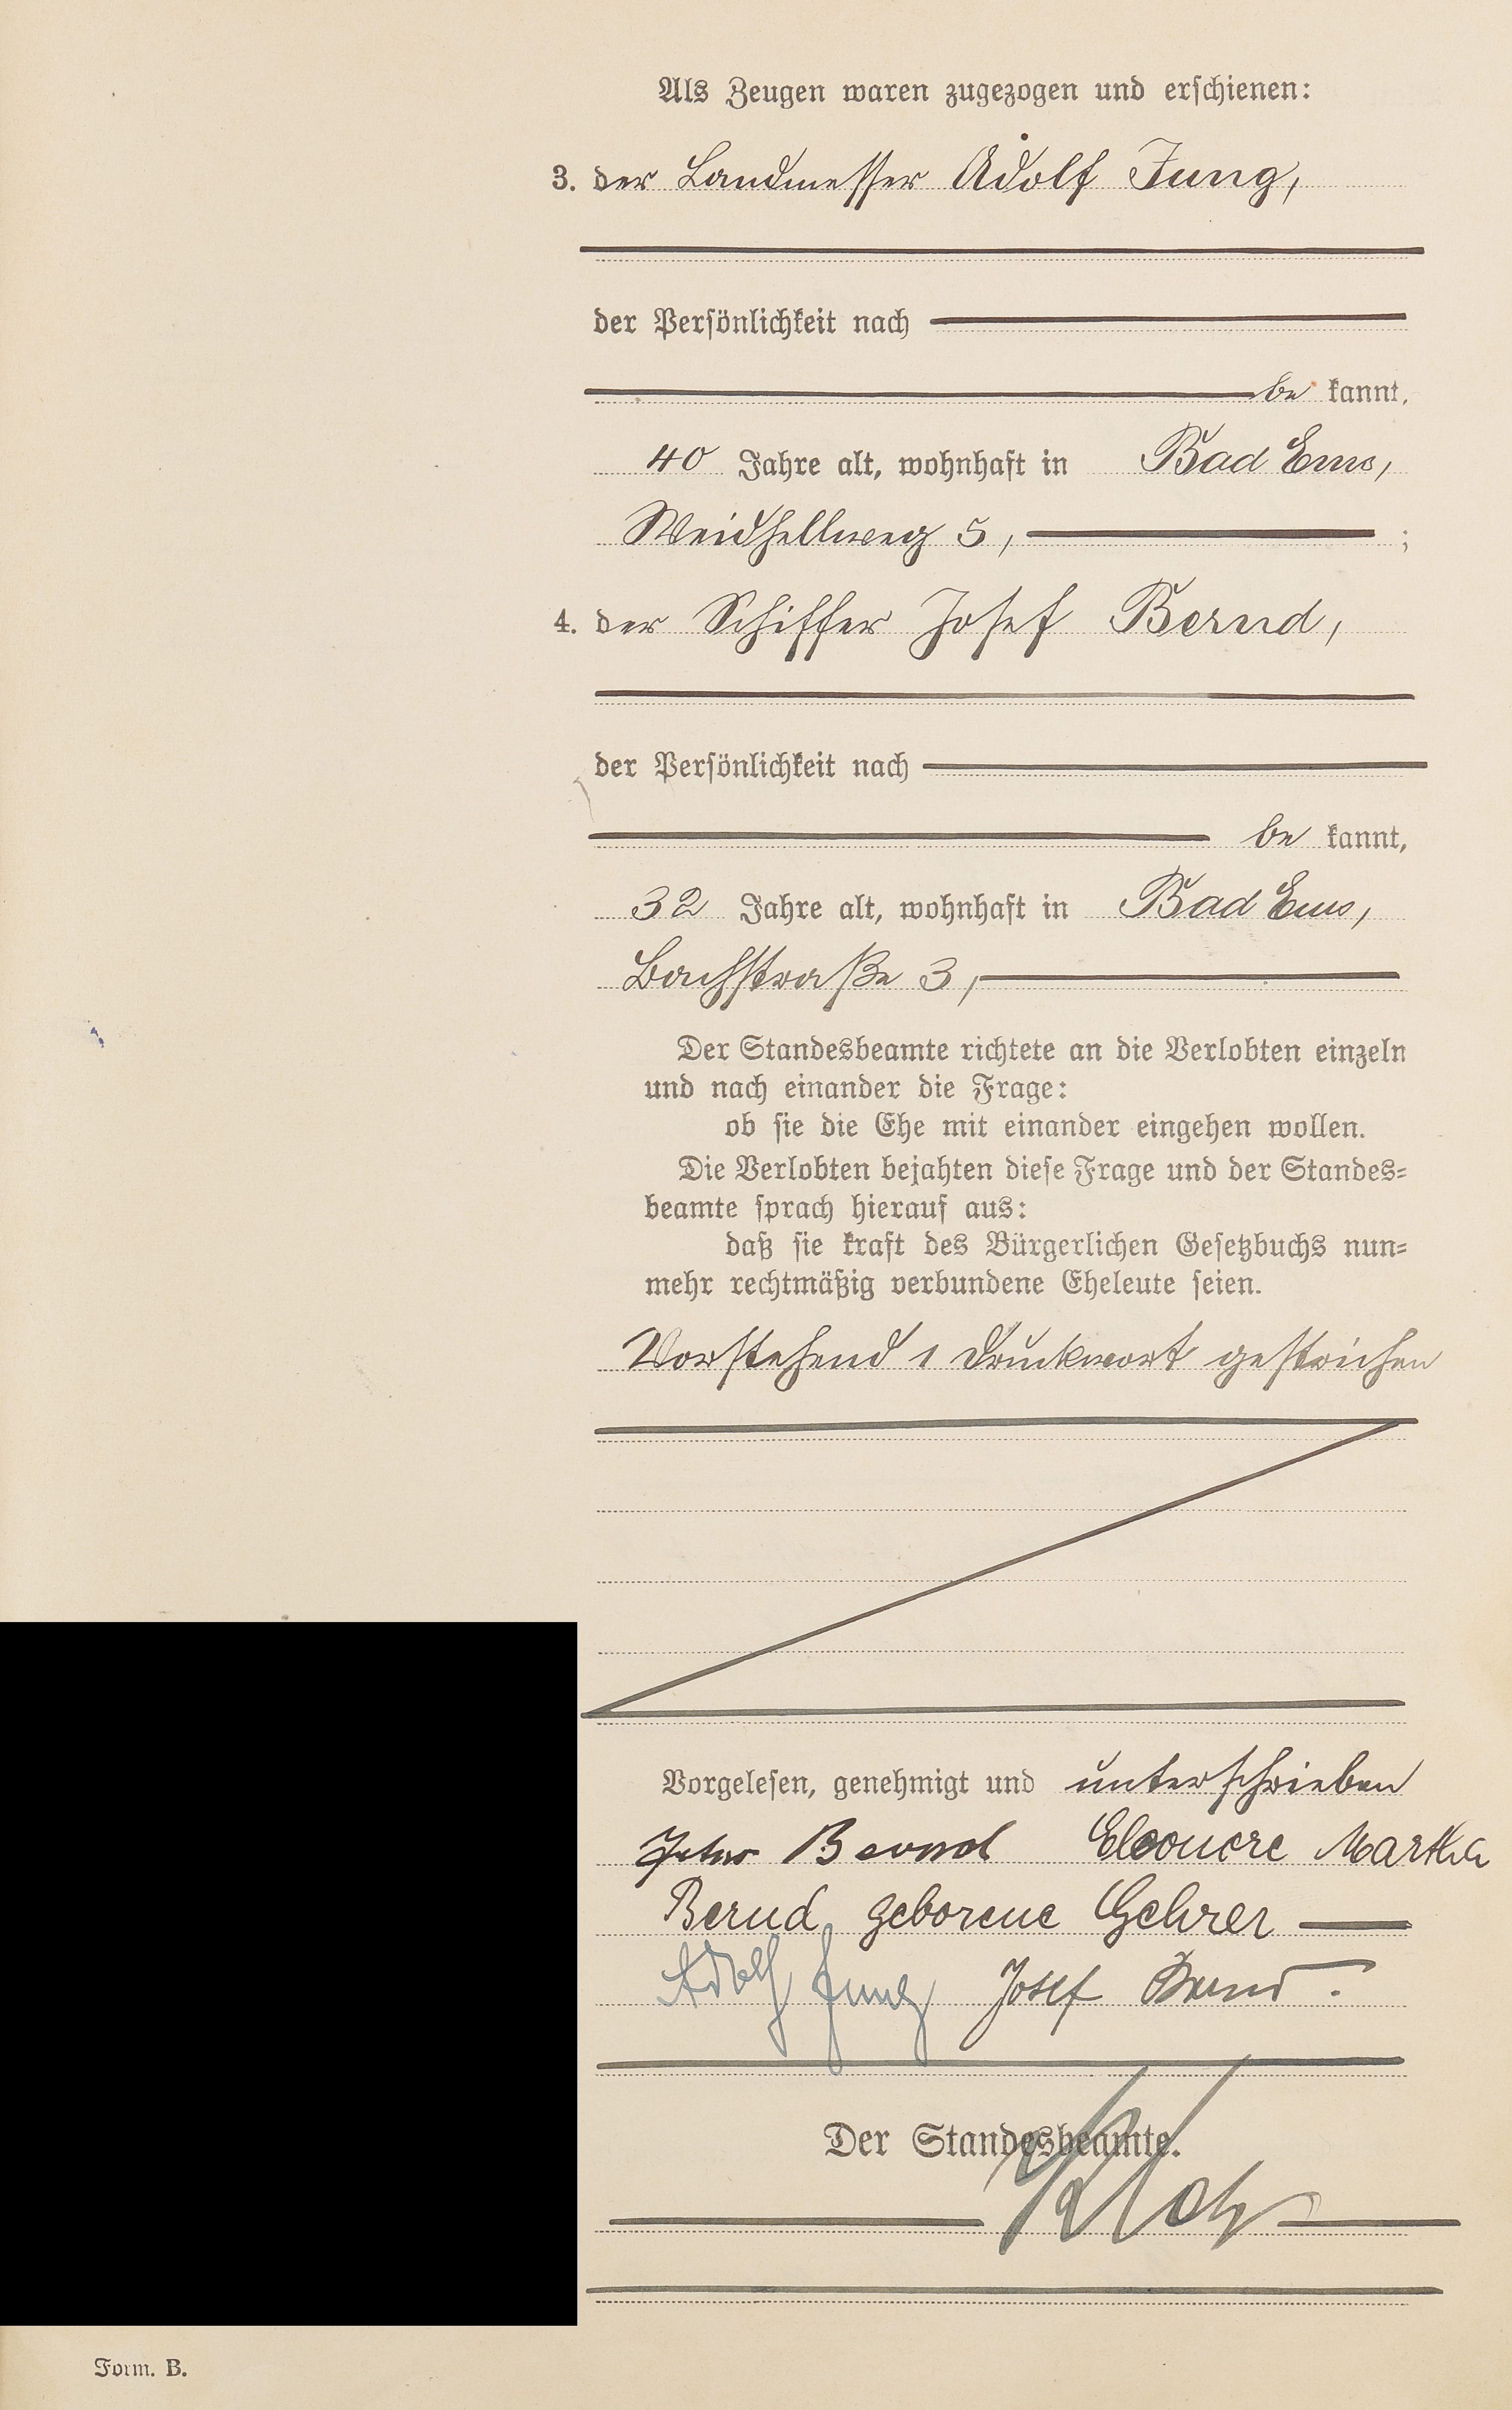 Als Zeugen waren zugezogen und erschienen:
3. der Landmesser Adolf Jung,
der Persönlichkeit nach
be kannt,
40 Jahre alt, wohnhaft in Bad Ems,
Weidhellweg 5, ;
4. der Schiffer Josef Bernd,
der Persönlichkeit nach
be kannt,
32 Jahre alt, wohnhaft in Bad Ems,
Bachstraße 3,
Der Standesbeamte richtete an die Verlobten einzeln
und nach einander die Frage:
ob sie die Ehe mit einander eingehen wollen.
Die Verlobten bejahten diese Frage und der Standes-
beamte sprach hierauf aus:
daß sie kraft des Bürgerlichen Gesetzbuchs nun-
mehr rechtmäßig verbundene Eheleute seien.
Vorstehend 1 Druckwort gestrichen
Vorgelesen, genehmigt und unterschrieben
Peter Bernd Eleonore Martha
Bernd, geborene Gehrer
Adolf Jung Josef Bernd.
Der Standesbeamte.
Form. B.